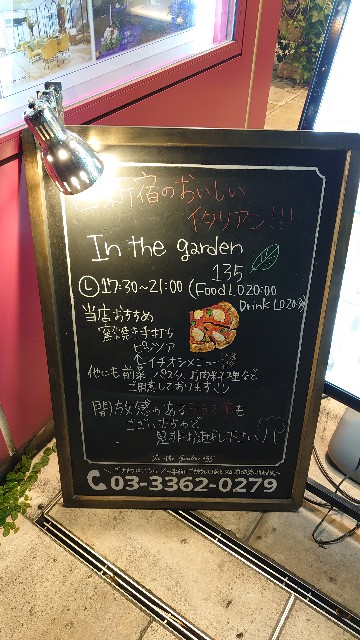 西新宿のおいしい
イタリアン!!!
In the garden
135
Ⓛ17:30~21:00 (Food LO 20:00
Drink LO 20:30)
当店おすすめ
窯焼き手打ち
ピッツァ
↑イチオシメニュー
他にも前菜 パスタ、お肉料理など
ご用意しております
開放感のあるテラス席も
ございますので
是非お越しください
In the garden 135
03-3362-0279